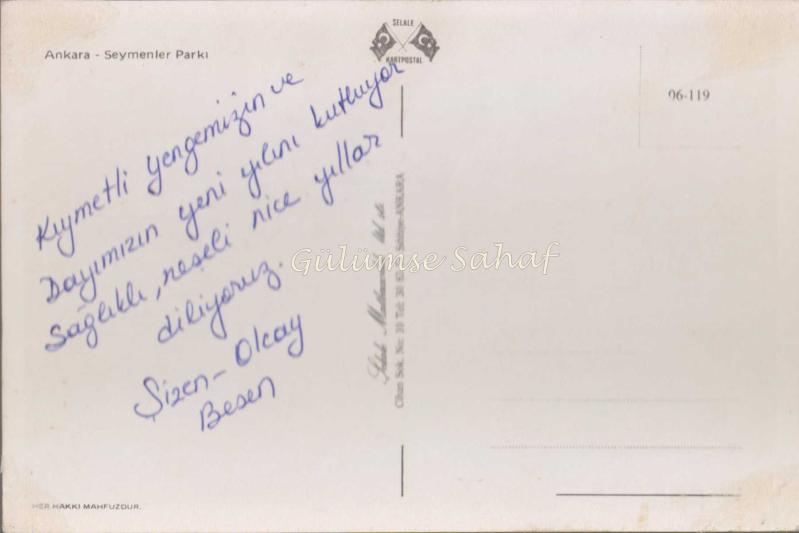 Ankara - Seymenler Parkı
ŞELALE
KARTPOSTAL
06-119
Kıymetli yengemizin ve
Dayımızın yeni yılını kutluyor
Sağlıklı, neşeli nice yıllar
diliyoruz.
Şizen - Olcay
Besen
Gülümse Sahaf
Cihan Sok. No: 10 Tel: 30
ANKARA
HER HAKKI MAHFUZDUR.